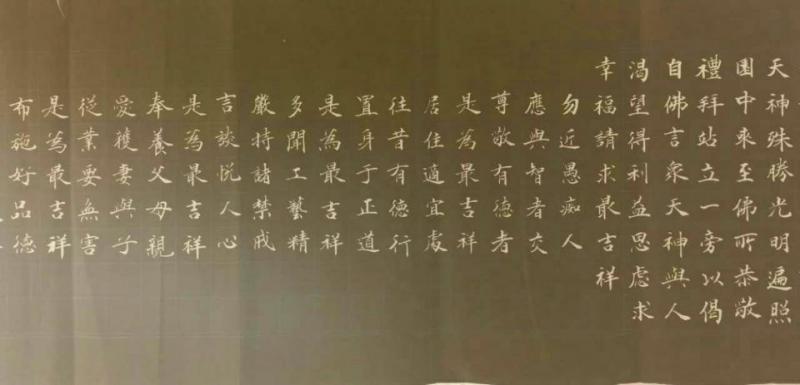 天神殊勝光明遍照
園中來至佛所恭敬
禮拜站立一旁以偈
自佛言眾天神與人
渴望得利益思慮求
幸福請求最吉祥
勿近愚痴人
應與智者交
尊敬有德者
是為最吉祥
居住適宜處
往昔有德行
置身于正道
是為最吉祥
多聞工藝精
嚴持諸禁戒
言談悅人心
是為最吉祥
奉養父母親
愛護妻與子
從業要無害
是為最吉祥
布施好品德